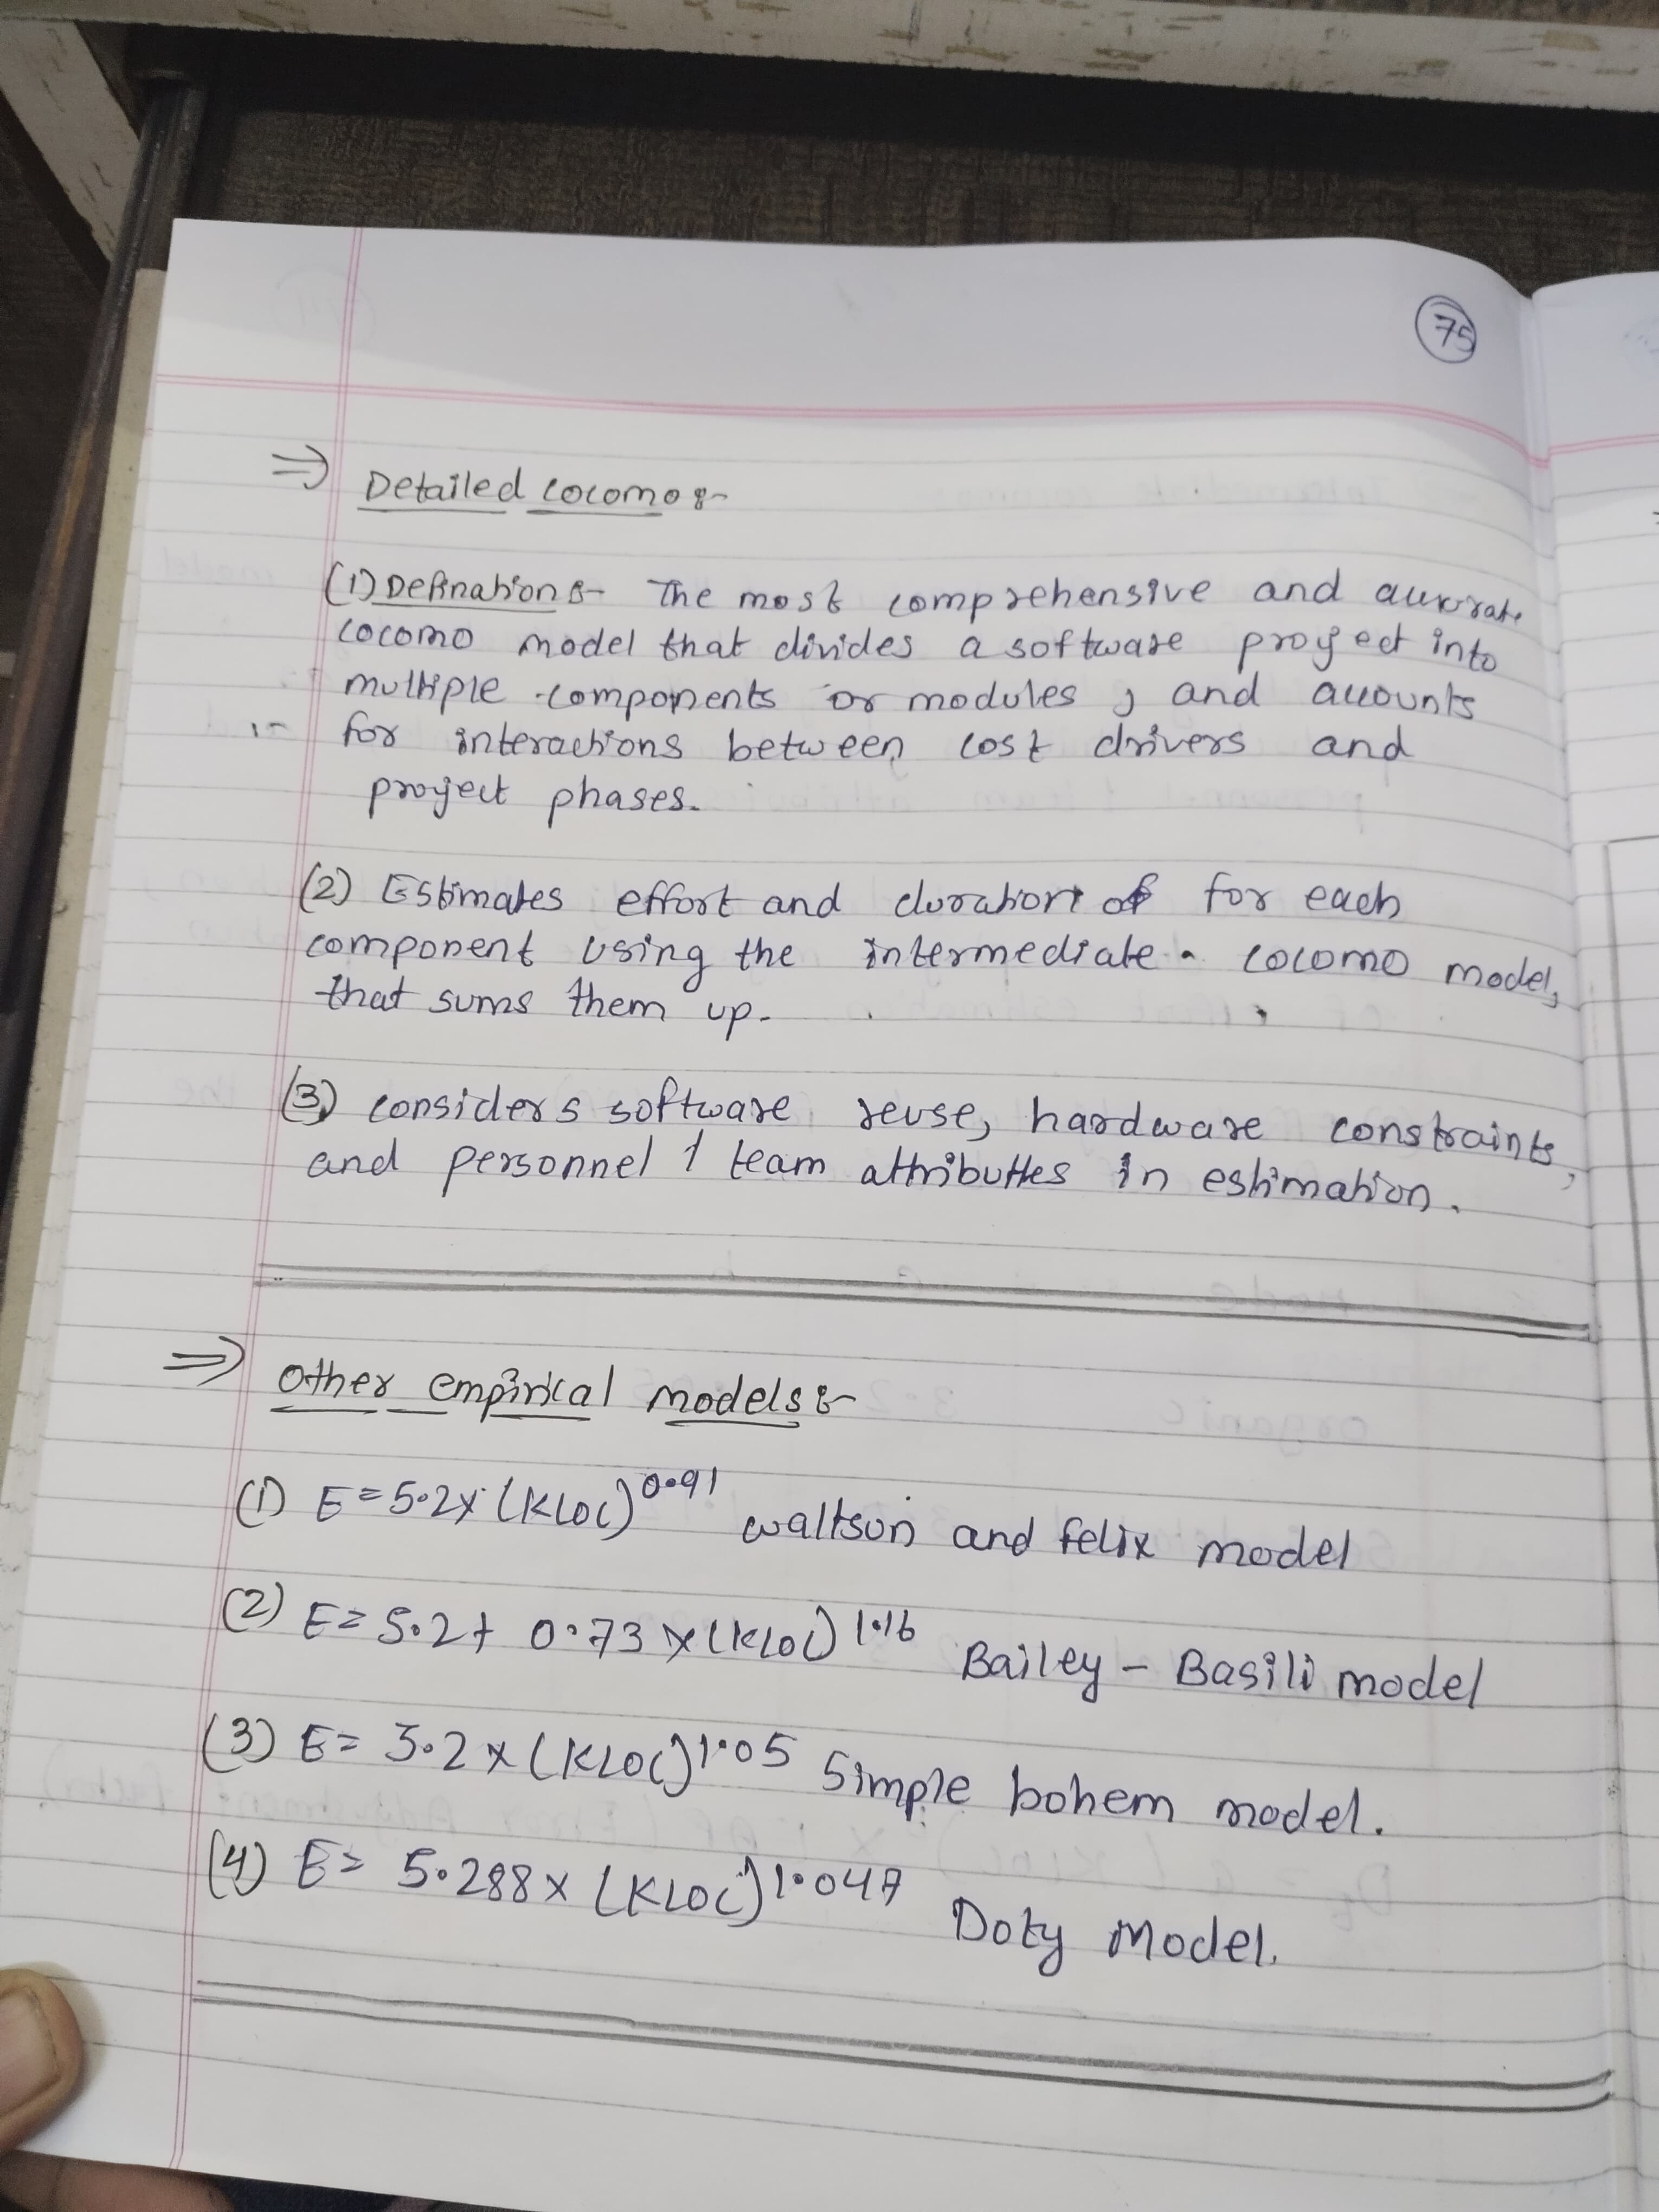 75
⇒ Detailed cocomo :-
(1) Defination :- The most comprehensive and accurate
cocomo model that divides a software project into
multiple components or modules, and accounts
for interactions between cost drivers and
project phases.
(2) Estimates effort and duration of for each
component using the intermediate cocomo model,
that sums them up.
(3) considers software reuse, hardware constraints,
and personnel / team attributtes in estimation.
⇒ Other empirical models :-
(1) E = 5.2 x (KLOC)^0.91 waltson and felix model
(2) E = 5.2 + 0.73 x (KLOC)^1.16 Bailey - Basili model
(3) E = 3.2 x (KLOC)^1.05 Simple bohem model.
(4) E = 5.288 x (KLOC)^1.047 Doty Model.